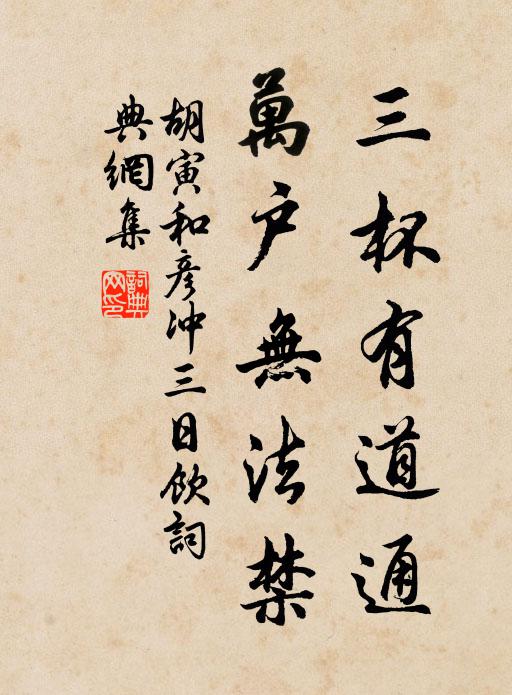 三杯有道通
萬户無法禁
胡寅和彦冲三日飲詞
典網集
詞典网印